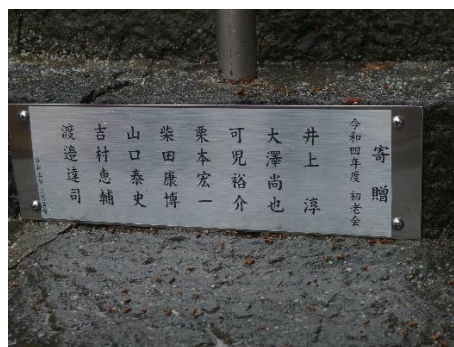 寄贈
令和四年度 初老会
井上 淳
大澤尚也
可児裕介
栗本宏一
柴田康博
山口泰史
吉村恵輔
渡邉達司